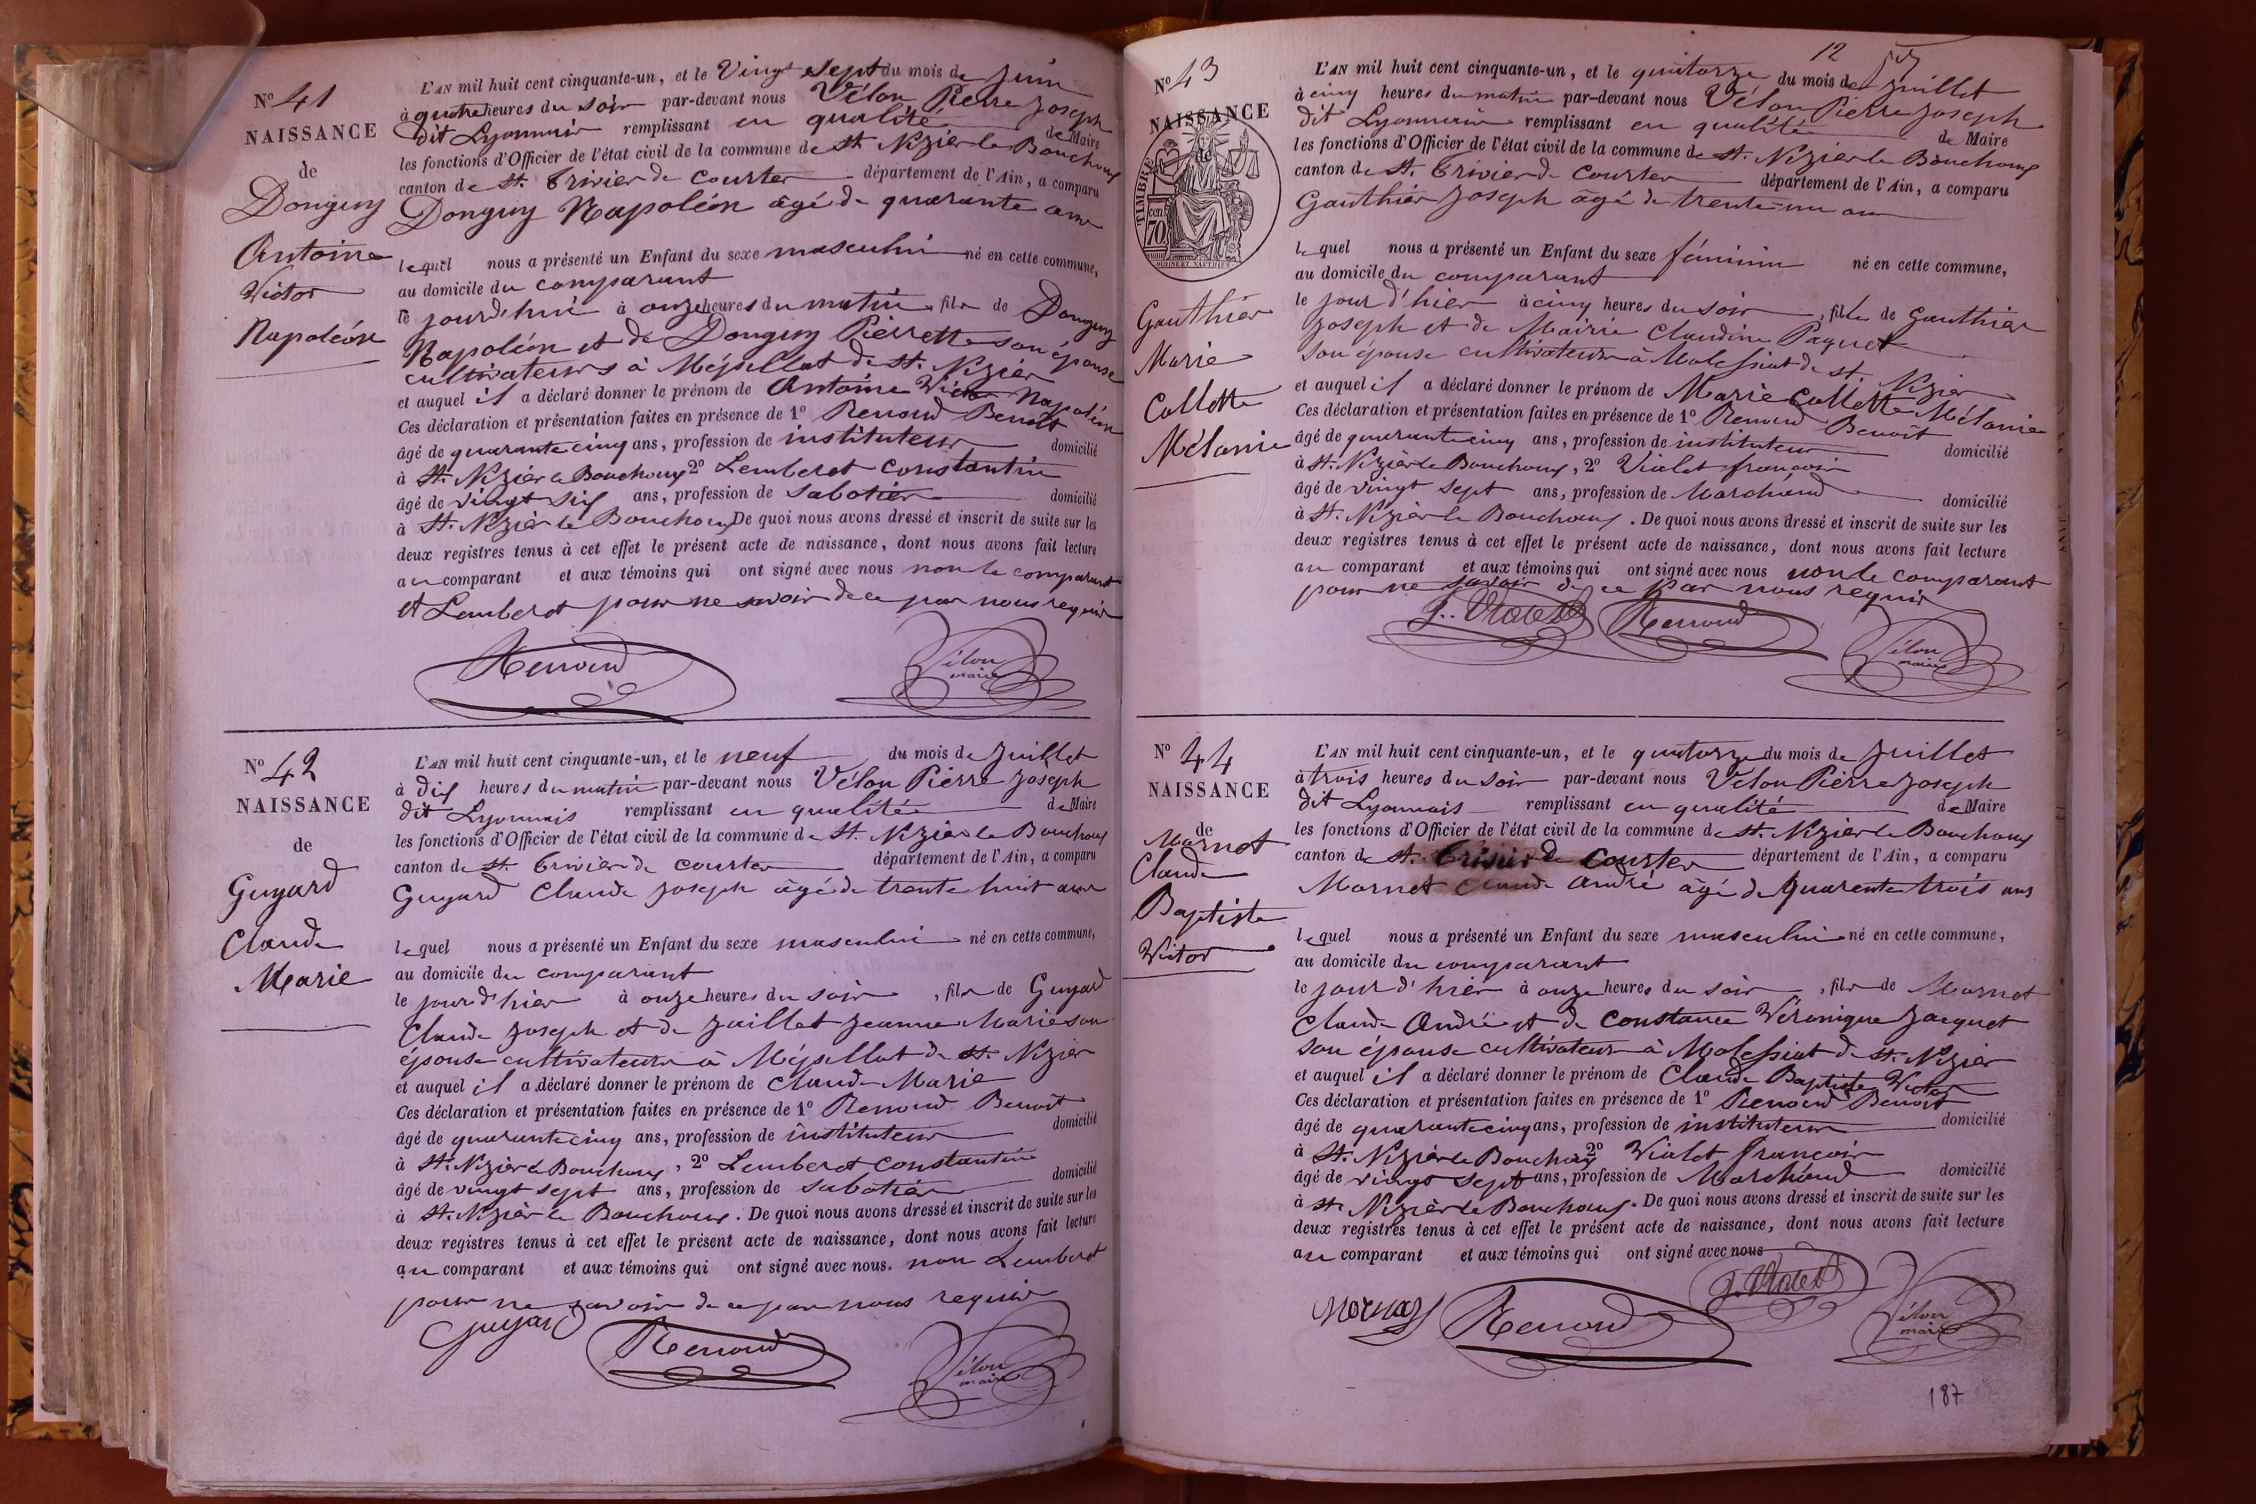 Nº 41
NAISSANCE
de
Donguy
Antoine
Victor
Napoléon
L'AN mil huit cent cinquante-un, et le Vingt sept du mois de Juin
à quatre heures du soir par-devant nous Vélon Pierre Joseph
dit Lyonnais remplissant en qualité de Maire
les fonctions d'Officier de l'état civil de la commune de St. Nizier le Bouchoux
canton de St. Trivier de Courtes département de l'Ain, a comparu
Donguy Napoléon âgé de quarante ans
lequel nous a présenté un Enfant du sexe masculin né en cette commune,
au domicile du comparant
le jourd'hui à onze heures du matin, fils de Donguy
Napoléon et de Donguy Pierrette son épouse
cultivateurs à Mépillat de St. Nizier
et auquel il a déclaré donner le prénom de Antoine Victor Napoléon
Ces déclaration et présentation faites en présence de 1º Renoud Benoît
âgé de quarante cinq ans, profession de instituteur domicilié
à St. Nizier le Bouchoux 2º Lemberot Constantin
âgé de vingt six ans, profession de sabotier domicilié
à St. Nizier le Bouchoux De quoi nous avons dressé et inscrit de suite sur les
deux registres tenus à cet effet le présent acte de naissance, dont nous avons fait lecture
au comparant et aux témoins qui ont signé avec nous non le comparant
et Lemberot pour ne savoir de ce par nous requis
Renoud
Vélon
maire
Nº 42
NAISSANCE
de
Guyard
Claude
Marie
L'AN mil huit cent cinquante-un, et le neuf du mois de Juillet
à dix heures du matin par-devant nous Vélon Pierre Joseph
dit Lyonnais remplissant en qualité de Maire
les fonctions d'Officier de l'état civil de la commune de St. Nizier le Bouchoux
canton de St. Trivier de Courtes département de l'Ain, a comparu
Guyard Claude Joseph âgé de trente huit ans
lequel nous a présenté un Enfant du sexe masculin né en cette commune,
au domicile du comparant
le jour d'hier à onze heures du soir, fils de Guyard
Claude Joseph et de Juillet Jeanne Marie son
épouse cultivateurs à Mépillat de St. Nizier
et auquel il a déclaré donner le prénom de Claude Marie
Ces déclaration et présentation faites en présence de 1º Renoud Benoît
âgé de quarante cinq ans, profession de instituteur domicilié
à St. Nizier le Bouchoux, 2º Lemberot Constantin
âgé de vingt sept ans, profession de sabotier domicilié
à St. Nizier le Bouchoux. De quoi nous avons dressé et inscrit de suite sur les
deux registres tenus à cet effet le présent acte de naissance, dont nous avons fait lecture
au comparant et aux témoins qui ont signé avec nous. non Lemberot
pour ne savoir de ce par nous requis
Guyard
Renoud
Vélon
maire
12
Nº 43
NAISSANCE
de
TIMBRE
cen
70
Gauthier
Marie
Collette
Mélanie
L'AN mil huit cent cinquante-un, et le quatorze du mois de Juillet
à cinq heures du matin par-devant nous Vélon Pierre Joseph
dit Lyonnais remplissant en qualité de Maire
les fonctions d'Officier de l'état civil de la commune de St. Nizier le Bouchoux
canton de St. Trivier de Courtes département de l'Ain, a comparu
Gauthier Joseph âgé de trente-un ans
lequel nous a présenté un Enfant du sexe féminin né en cette commune,
au domicile du comparant
le jour d'hier à cinq heures du soir, fille de Gauthier
Joseph et de Marie Claudine Paquet
son épouse cultivateurs à Molessiat de St. Nizier
et auquel il a déclaré donner le prénom de Marie Collette Mélanie
Ces déclaration et présentation faites en présence de 1º Renoud Benoît
âgé de quarante cinq ans, profession de instituteur domicilié
à St. Nizier le Bouchoux, 2º Violet françois
âgé de vingt sept ans, profession de Marchand domicilié
à St. Nizier le Bouchoux. De quoi nous avons dressé et inscrit de suite sur les
deux registres tenus à cet effet le présent acte de naissance, dont nous avons fait lecture
au comparant et aux témoins qui ont signé avec nous non le comparant
pour ne savoir de ce par nous requis
f. Violet
Renoud
Vélon
maire
Nº 44
NAISSANCE
de
Mornet
Claude
Baptiste
Victor
L'AN mil huit cent cinquante-un, et le quatorze du mois de Juillet
à trois heures du soir par-devant nous Vélon Pierre Joseph
dit Lyonnais remplissant en qualité de Maire
les fonctions d'Officier de l'état civil de la commune de St. Nizier le Bouchoux
canton de St. Trivier de Courtes département de l'Ain, a comparu
Mornet Claude André âgé de quarente trois ans
lequel nous a présenté un Enfant du sexe masculin né en cette commune,
au domicile du comparant
le jour d'hier à onze heures du soir, fils de Mornet
Claude André et de Constance Véronique Jacquet
son épouse cultivateurs à Molessiat de St. Nizier
et auquel il a déclaré donner le prénom de Claude Baptiste Victor
Ces déclaration et présentation faites en présence de 1º Renoud Benoît
âgé de quarante cinq ans, profession de instituteur domicilié
à St. Nizier le Bouchoux 2º Violet françois
âgé de vingt sept ans, profession de Marchand domicilié
à St. Nizier le Bouchoux. De quoi nous avons dressé et inscrit de suite sur les
deux registres tenus à cet effet le présent acte de naissance, dont nous avons fait lecture
au comparant et aux témoins qui ont signé avec nous
f. Violet
Renoud
Vélon
maire
187